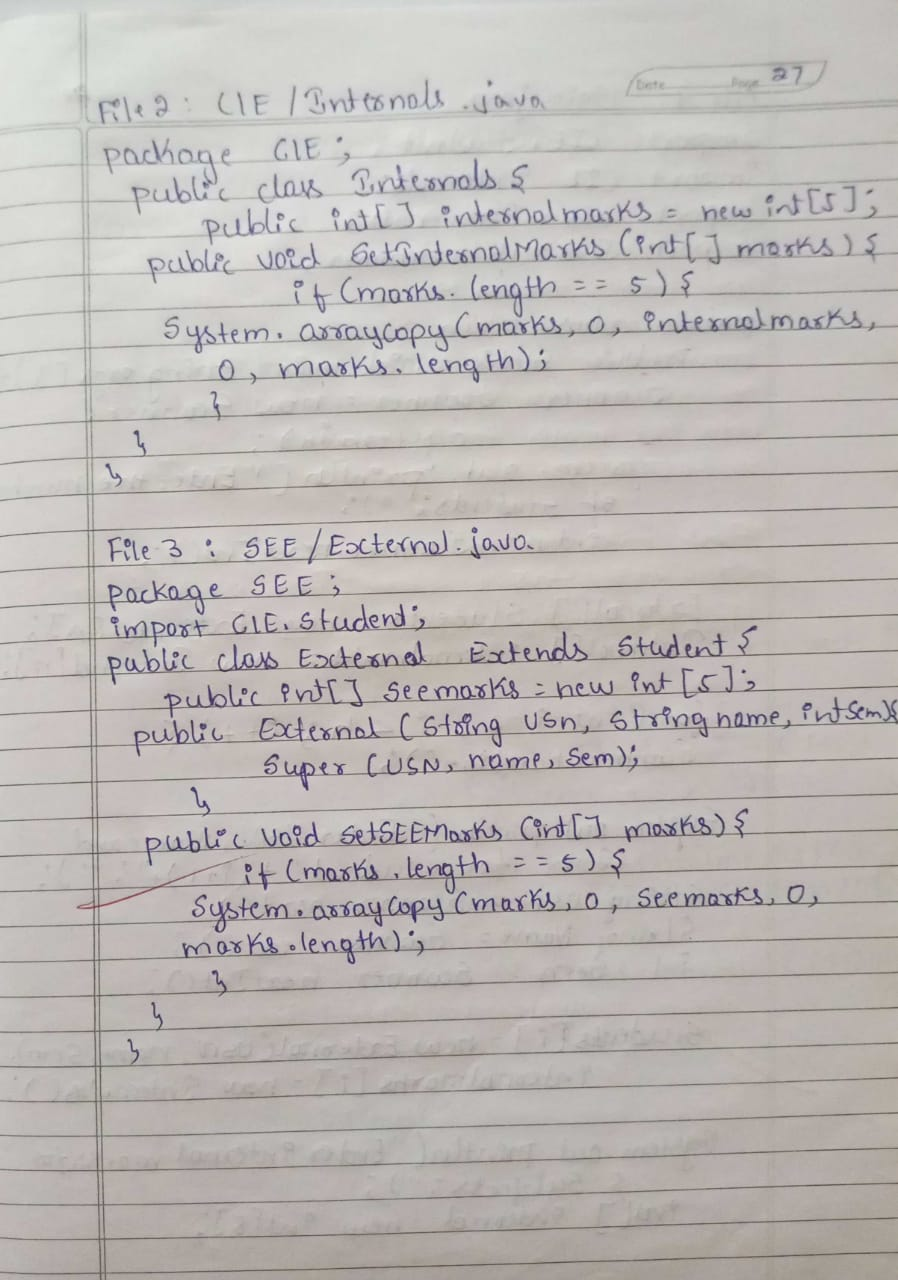 Date Page 27
File 2 : CIE / Internals .java
package CIE ;
public class Internals {
public int[] internalmarks = new int[5];
public void SetInternalMarks (int[] marks) {
if (marks. length == 5) {
System. arraycopy (marks, 0, internalmarks,
0, marks. length);
}
}
}
File 3 : SEE / External.java
package SEE ;
import CIE. Student;
public class External Extends Student {
public int[] Seemarks = new int [5];
public External (String usn, String name, int Sem){
Super (USN, name, Sem);
}
public void SetSEEMarks (int[] marks) {
if (marks .length == 5) {
System.arraycopy (marks, 0, Seemarks, 0,
marks.length);
}
}
}